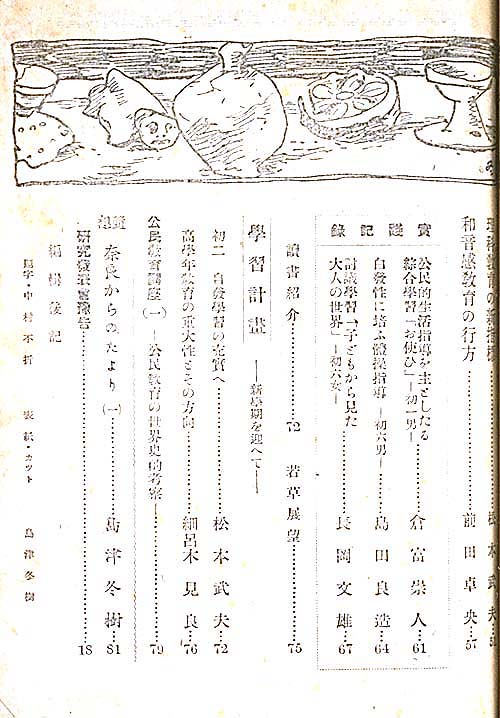 和音感教育の行方……前田卓央…57
實踐記錄
公民的生活指導を主としたる
綜合學習「お使ひ」―初一男―……倉富崇人…61
自發性に培ふ體操指導―初六男―……島田良造…64
討議學習「子どもから見た
大人の世界」―初六女―……長岡文雄…67
讀書紹介……72
若草展望……75
學習計畫――新學期を迎へて――
初二 自發學習の充實へ……松本武夫…72
高學年敎育の重大性とその方向……細呂木見良…76
公民敎育講座(一)―公民敎育の世界史的考察―……79
隨想 奈良からのたより(一)……島津冬樹…81
研究發表會豫告……18
編輯後記
題字・中村不折 表紙・カット 島津冬樹